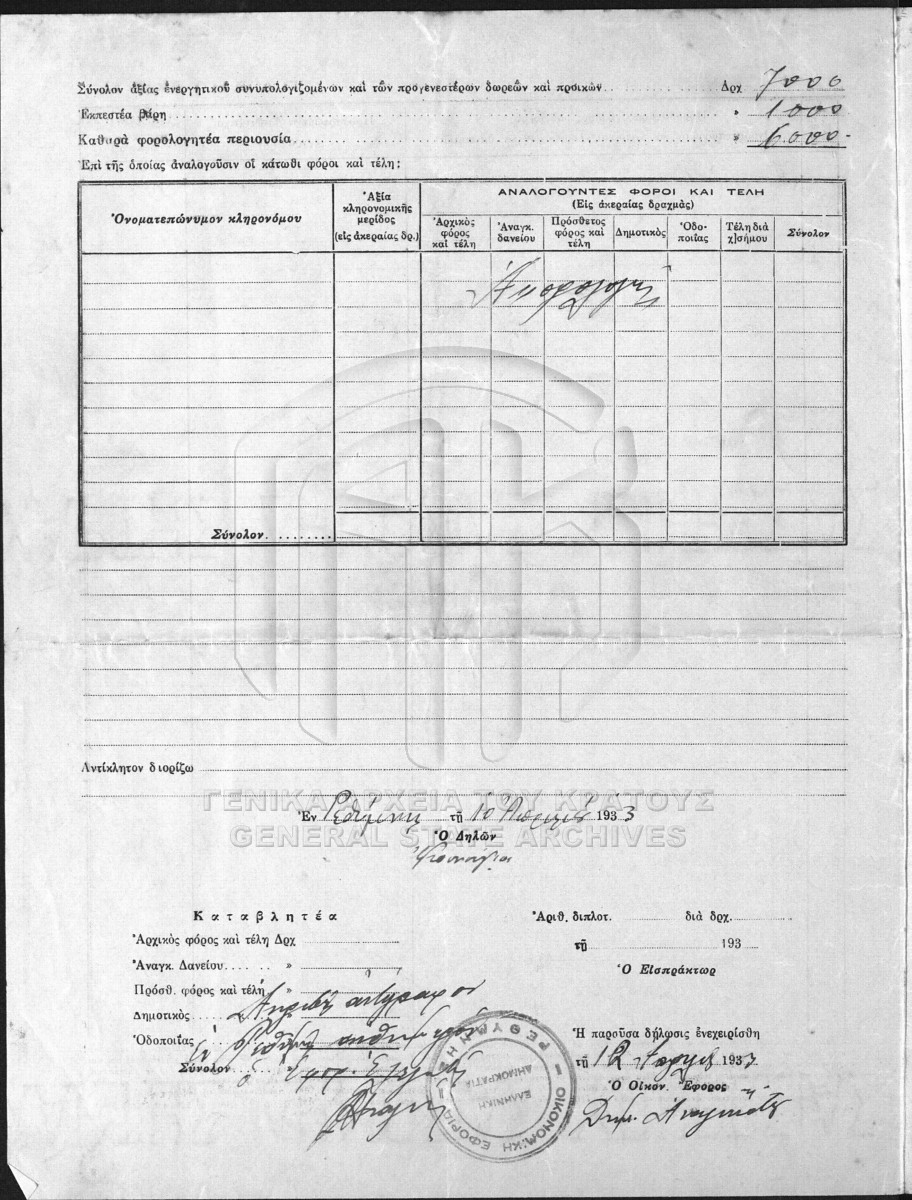 Σύνολον ἀξίας ἐνεργητικοῦ συνυπολογιζομένων καὶ τῶν προγενεστέρων δωρεῶν καὶ προικῶν Δρχ 7000
Ἐκπεστέα βάρη » 1000
Καθαρὰ φορολογητέα περιουσία » 6000-
Ἐπὶ τῆς ὁποίας ἀναλογοῦσιν οἱ κάτωθι φόροι καὶ τέλη:
Ὀνοματεπώνυμον κληρονόμου
Ἀξία κληρονομικῆς μερίδος (εἰς ἀκεραίας δρ.)
ΑΝΑΛΟΓΟΥΝΤΕΣ ΦΟΡΟΙ ΚΑΙ ΤΕΛΗ
(Εἰς ἀκεραίας δραχμὰς)
Ἀρχικὸς φόρος καὶ τέλη
Ἀναγκ. δανείου
Πρόσθετος φόρος καὶ τέλη
Δημοτικὸς
Ὁδοποιΐας
Τέλη διὰ χ)σήμου
Σύνολον
Σύνολον
Ἀντίκλητον διορίζω
ΓΕΝΙΚΑ ΑΡΧΕΙΑ ΤΟΥ ΚΡΑΤΟΥΣ
Ἐν Ρεθύμνῃ τῇ 10 Ἀπριλίου 1933
GENERAL STATE ARCHIVES
Ὁ Δηλῶν
Καταβλητέα
Ἀρχικὸς φόρος καὶ τέλη Δρχ
Ἀναγκ. Δανείου »
Πρόσθ. φόρος καὶ τέλη »
Δημοτικὸς
Ὁδοποιΐας
Σύνολον
Ἀκριβὲς ἀντίγραφον
Ἀριθ. διπλοτ. διὰ δρχ.
τῇ 193
Ὁ Εἰσπράκτωρ
Ἡ παροῦσα δήλωσις ἐνεχειρίσθη
τῇ 12 Ἀπριλίου 1933
Ὁ Οἰκον. Ἔφορος
ΟΙΚΟΝΟΜΙΚΗ ΕΦΟΡΙΑ ΡΕΘΥΜΝΗΣ
ΕΛΛΗΝΙΚΗ
ΔΗΜΟΚΡΑΤΙΑ